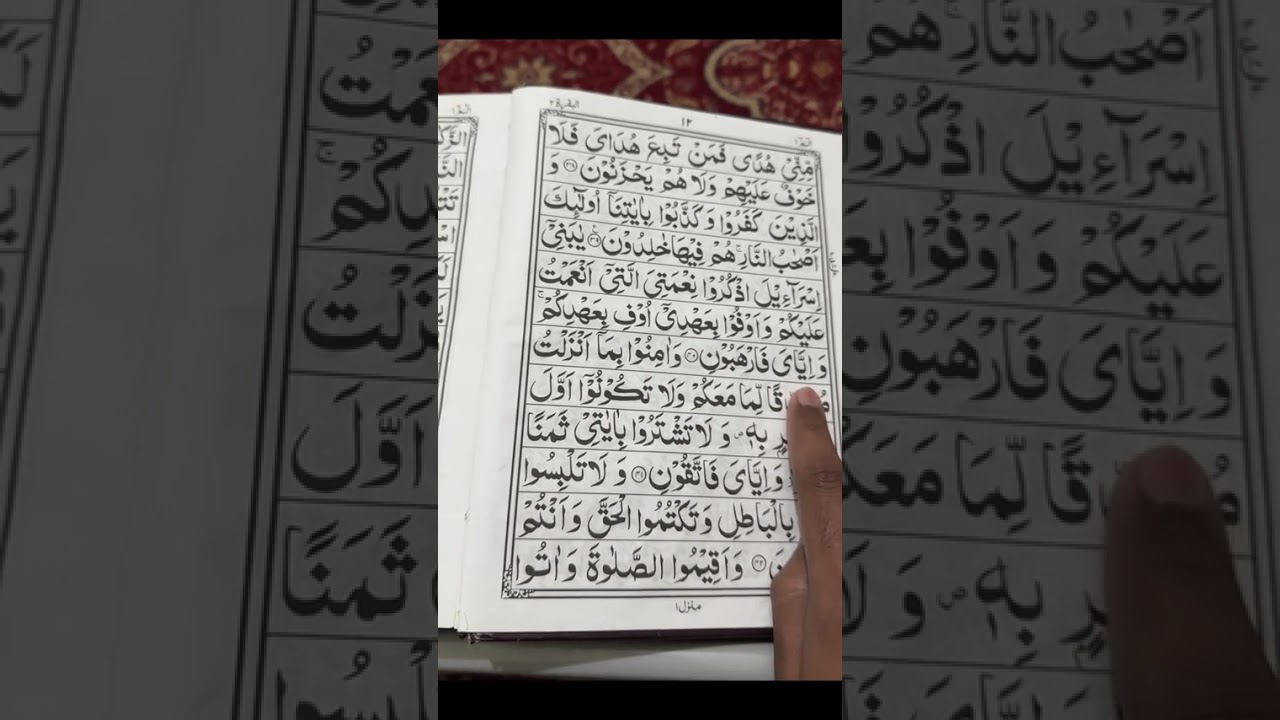 البقرة ٢
١٢
الٓمّٓ ١
مِّنِّیْ هُدًی فَمَنْ تَبِعَ هُدَایَ فَلَا
خَوْفٌ عَلَیْهِمْ وَلَا هُمْ یَحْزَنُوْنَ ﴿۳۸﴾ وَ
الَّذِیْنَ كَفَرُوْا وَكَذَّبُوْا بِاٰیٰتِنَاۤ اُولٰٓئِكَ
اَصْحٰبُ النَّارِ ۚ هُمْ فِیْهَا خٰلِدُوْنَ ﴿۳۹﴾ یٰبَنِیْۤ
اِسْرَآءِیْلَ اذْكُرُوْا نِعْمَتِیَ الَّتِیْۤ اَنْعَمْتُ
عَلَیْكُمْ وَاَوْفُوْا بِعَهْدِیْۤ اُوْفِ بِعَهْدِكُمْ ۚ
وَاِیَّایَ فَارْهَبُوْنِ ﴿۴۰﴾ وَاٰمِنُوْا بِمَاۤ اَنْزَلْتُ
لِّمَا مَعَكُمْ وَلَا تَكُوْنُوْۤا اَوَّلَ
بِهٖ ۪ وَلَا تَشْتَرُوْا بِاٰیٰتِیْ ثَمَنًا
وَاِیَّایَ فَاتَّقُوْنِ ﴿۴۱﴾ وَلَا تَلْبِسُوا
بِالْبَاطِلِ وَتَكْتُمُوا الْحَقَّ وَاَنْتُمْ
﴿۴۲﴾ وَاَقِیْمُوا الصَّلٰوةَ وَاٰتُوا
منزل ١